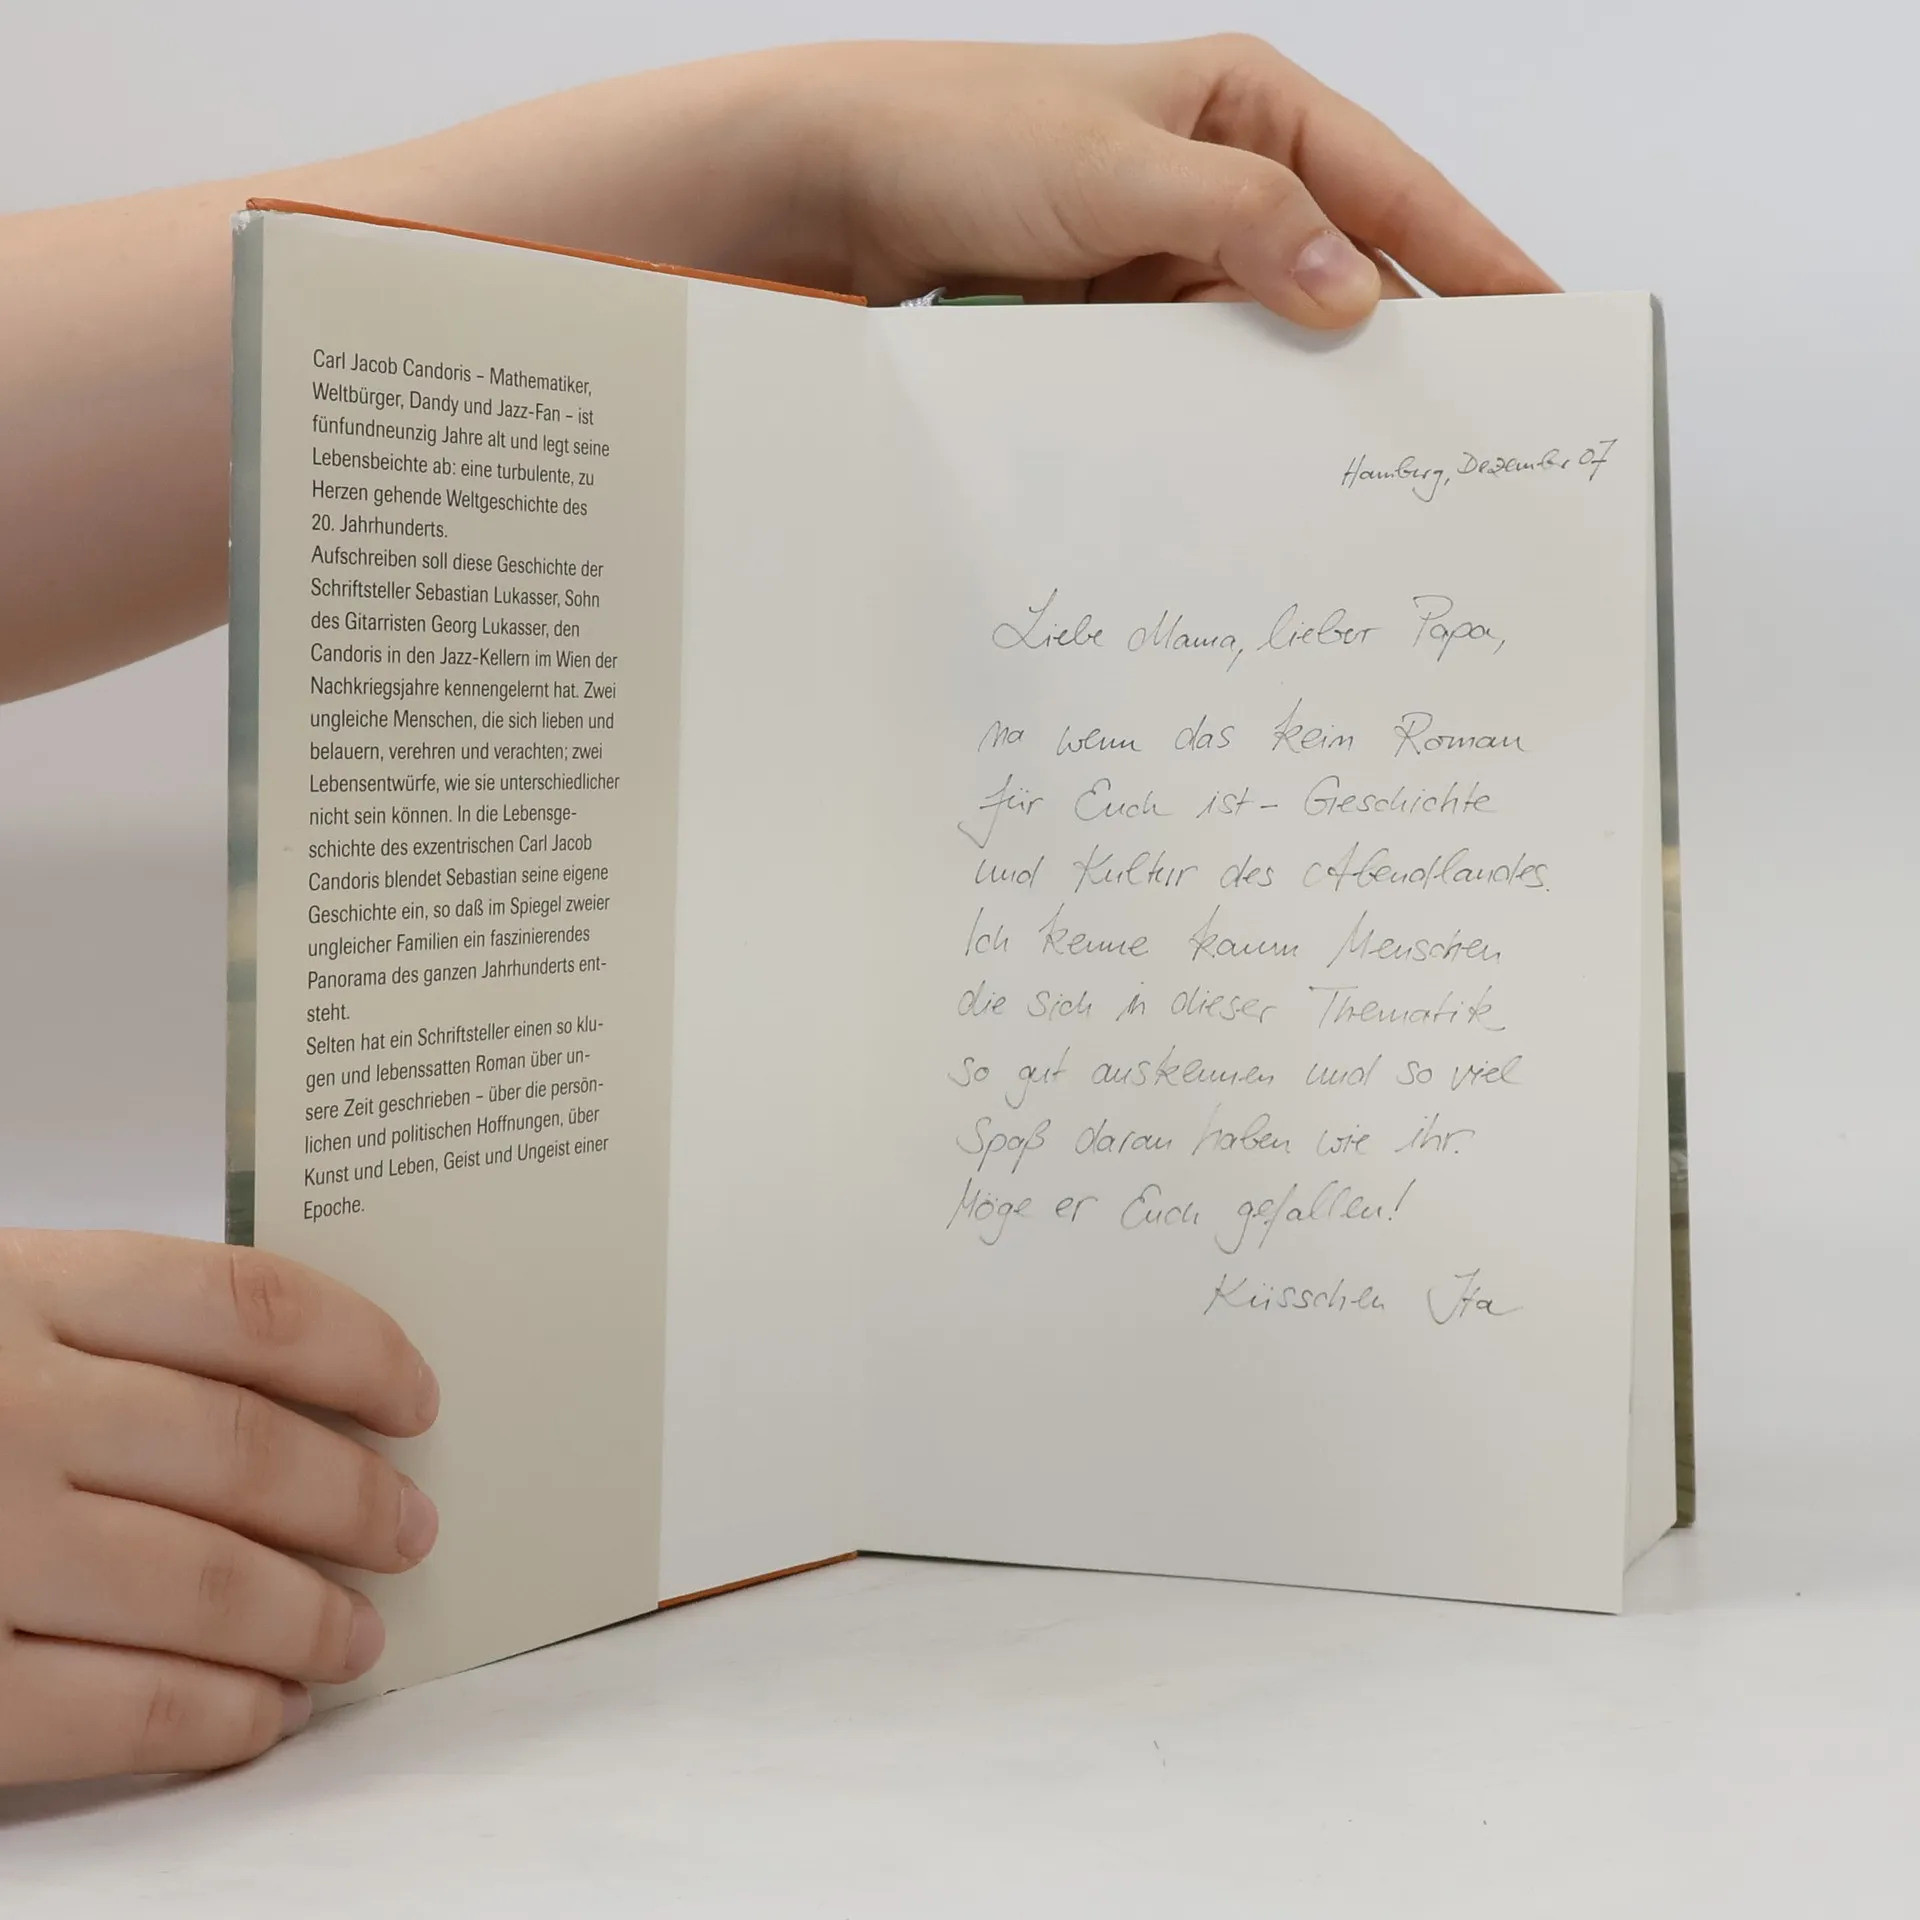 Carl Jacob Candoris – Mathematiker,
Weltbürger, Dandy und Jazz-Fan – ist
fünfundneunzig Jahre alt und legt seine
Lebensbeichte ab: eine turbulente, zu
Herzen gehende Weltgeschichte des
20. Jahrhunderts.
Aufschreiben soll diese Geschichte der
Schriftsteller Sebastian Lukasser, Sohn
des Gitarristen Georg Lukasser, den
Candoris in den Jazz-Kellern im Wien der
Nachkriegsjahre kennengelernt hat. Zwei
ungleiche Menschen, die sich lieben und
belauern, verehren und verachten; zwei
Lebensentwürfe, wie sie unterschiedlicher
nicht sein können. In die Lebensge-
schichte des exzentrischen Carl Jacob
Candoris blendet Sebastian seine eigene
Geschichte ein, so daß im Spiegel zweier
ungleicher Familien ein faszinierendes
Panorama des ganzen Jahrhunderts ent-
steht.
Selten hat ein Schriftsteller einen so klu-
gen und lebenssatten Roman über un-
sere Zeit geschrieben – über die persön-
lichen und politischen Hoffnungen, über
Kunst und Leben, Geist und Ungeist einer
Epoche.
Hamburg, Dezember 07
Liebe Mama, lieber Papa,
na wenn das kein Roman
für Euch ist – Geschichte
und Kultur des Abendlandes.
Ich kenne kaum Menschen
die sich in dieser Thematik
so gut auskennen und so viel
Spaß daran haben wie ihr.
Möge er Euch gefallen!
Küsschen